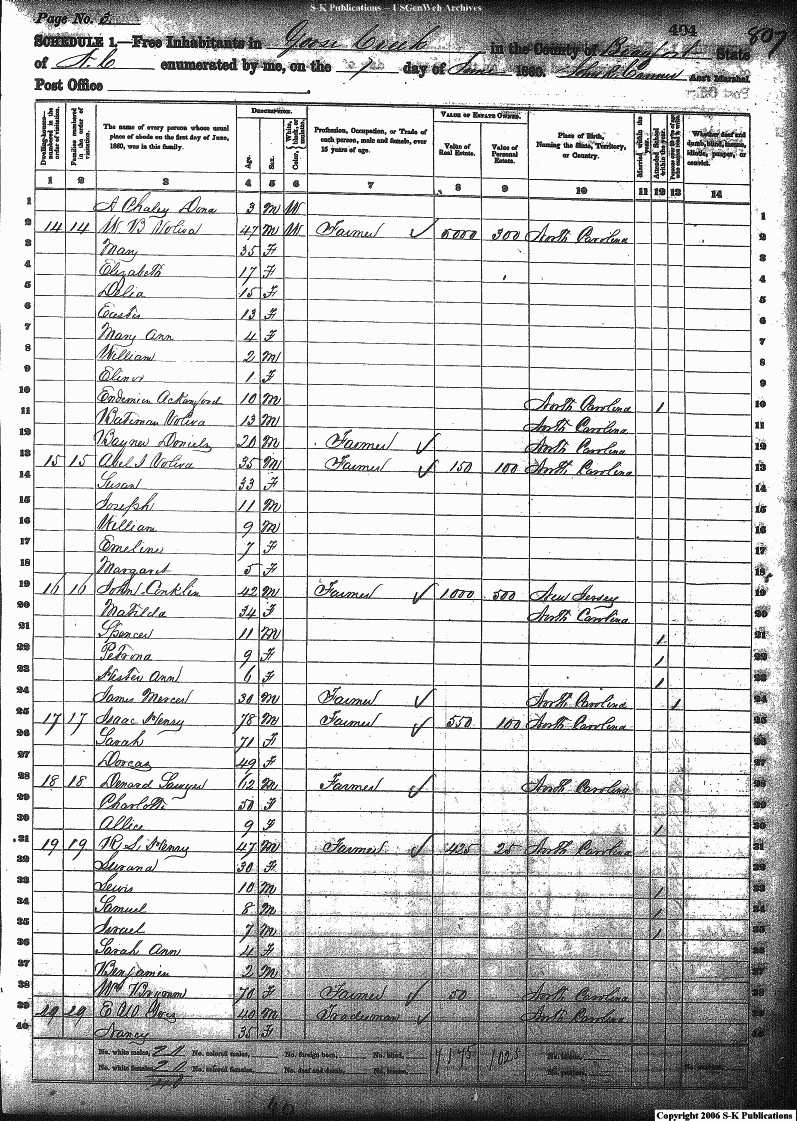 S-K Publications – USGenWeb Archives
Page No. 3
404
807
SCHEDULE 1.—Free Inhabitants in Goose Creek in the County of Beaufort State
of N.C. enumerated by me, on the 7 day of June 1860. Ass't Marshal
Post Office
Dwelling-houses—numbered in the order of visitation.
Families numbered in the order of visitation.
The name of every person whose usual place of abode on the first day of June, 1860, was in this family.
Description.
Age.
Sex.
Color, White, black, or mulatto.
Profession, Occupation, or Trade of each person, male and female, over 15 years of age.
Value of Estate Owned.
Value of Real Estate.
Value of Personal Estate.
Place of Birth, Naming the State, Territory, or Country.
Married within the year.
Attended School within the year.
Whether deaf and dumb, blind, insane, idiotic, pauper, or convict.
1 2 3 4 5 6 7 8 9 10 11 12 13 14
1 Dona 3 M W 1
2 14 14 W B Voliva 47 M W Farmer ✓ 5000 300 North Carolina 2
3 Mary 35 F 3
4 Elizabeth 17 F 4
5 Delia 15 F 5
6 Easter 13 F 6
7 Mary Ann 4 F 7
8 William 2 M 8
9 Elinor 1 F 9
10 10 M North Carolina 1 10
11 Voliva 13 M North Carolina 11
12 Daniels 20 M Farmer ✓ North Carolina 12
13 15 15 Abel J Voliva 35 M Farmer ✓ 150 100 North Carolina 13
14 Susan 33 F 14
15 Joseph 11 M 15
16 William 9 M 16
17 Emeline 7 F 17
18 Margaret 5 F 18
19 16 16 John Conklin 42 M Farmer ✓ 1000 500 New Jersey 19
20 Matilda 34 F North Carolina 20
21 Spencer 11 M 1 21
22 Petrona 9 F 1 22
23 Hester Ann 6 F 1 23
24 James Mercer 30 M Farmer ✓ North Carolina 1 24
25 17 17 Isaac Henry 78 M Farmer ✓ 550 100 North Carolina 25
26 Sarah 71 F 26
27 Dorcas 49 F 27
28 18 18 Denard Sawyer 62 M Farmer ✓ North Carolina 28
29 Charlotte 50 F 29
30 Allice 9 F 1 30
31 19 19 R S Henry 47 M Farmer ✓ 425 25 North Carolina 31
32 30 F 32
33 Lewis 10 M 1 33
34 Samuel 8 M 1 34
35 Israel 7 M 1 35
36 Sarah Ann 4 F 36
37 Benjamin 2 M 37
38 70 F Farmer ✓ 50 North Carolina 38
39 19 19 40 M Tradesman ✓ North Carolina 39
40 Nancy 35 F 40
No. white males, No. colored males, No. foreign born, No. blind, 7175 1025 No. idiotic,
No. white females, No. colored females, No. deaf and dumb, No. insane, No. paupers, No. convicts,
40
Copyright 2006 S-K Publications